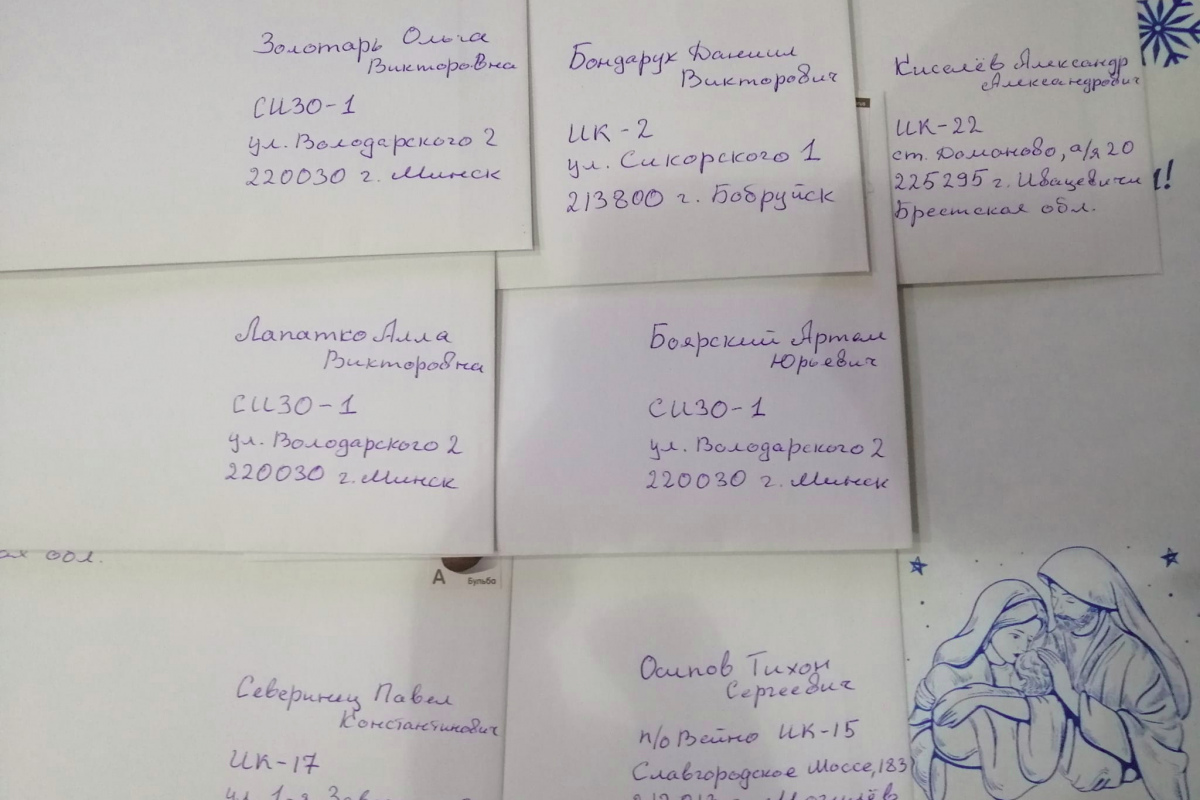 Золотарь Ольга
Викторовна
СИЗО-1
ул. Володарского 2
220030 г. Минск
Бондарук Даниил
Викторович
ИК-2
ул. Сикорского 1
213800 г. Бобруйск
Киселёв Александр
Александрович
ИК-22
ст. Доманово, а/я 20
225295 г. Ивацевичи
Брестская обл.
!
Лапатко Алла
Викторовна
СИЗО-1
ул. Володарского 2
220030 г. Минск
Боярский Артем
Юрьевич
СИЗО-1
ул. Володарского 2
220030 г. Минск
обл.
А Бульба
Северинец Павел
Константинович
ИК-17
ул. 1-я
Осипов Тихон
Сергеевич
п/о Вейно ИК-15
Славгородское Шоссе, 183
212013 г. Могилёв